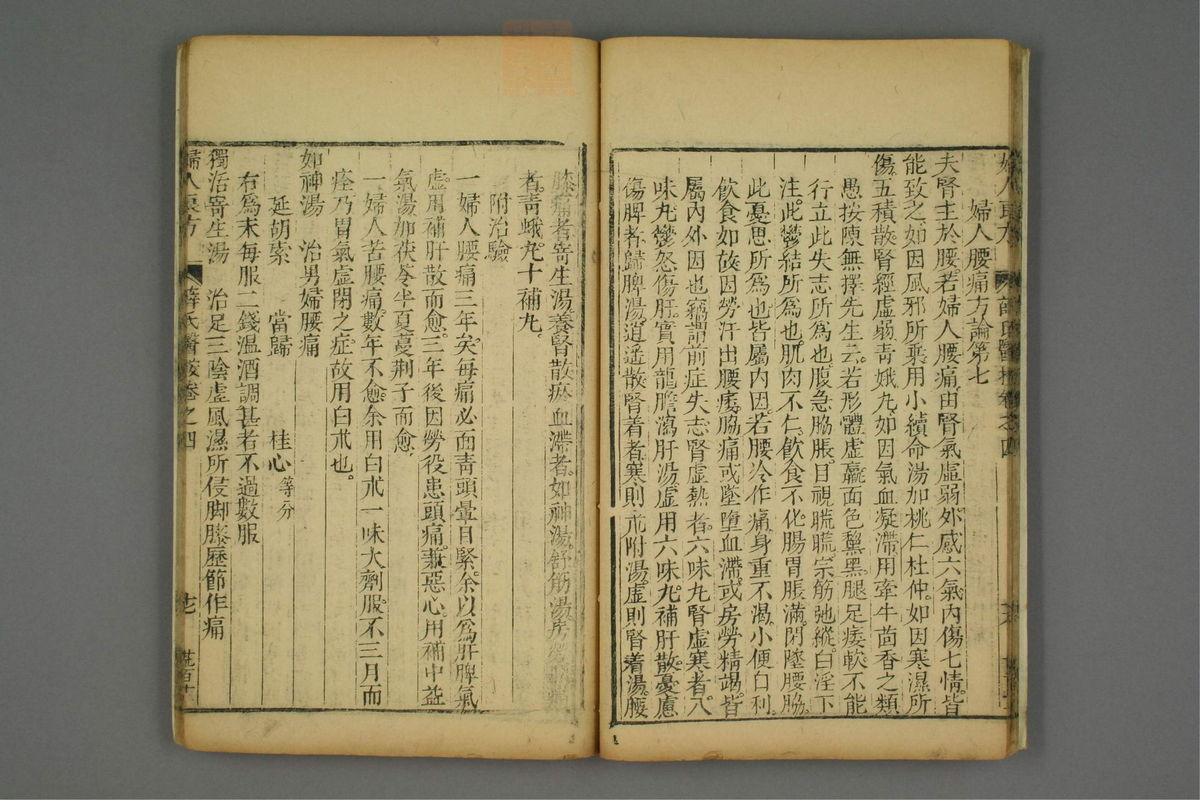 婦人良方 薛氏醫按卷之四
婦人腰痛方論第七
夫腎主於腰若婦人腰痛由腎氣虛弱外感六氣內傷七情皆
能致之如因風邪所乘用小續命湯加桃仁杜仲如因寒濕所
傷五積散腎經虛弱青娥丸如因氣血凝滯用牽牛茴香之類
愚按陳無擇先生云若形體虛羸面色黧黑腿足痿軟不能
行立此失志所為也腹急脇脹目視䀮䀮宗筋弛縱白淫下
注此鬱結所為也肌肉不仁飲食不化腸胃脹滿閃墜腰脇
此憂思所為也皆屬內因若腰冷作痛身重不渴小便自利
飲食如故因勞汗出腰痿脇痛或墜墮血滯或房勞精竭皆
屬內外因也竊謂前症失志腎虛熱者六味丸腎虛寒者八
味丸鬱怒傷肝實用龍膽瀉肝湯虛用六味丸補肝散憂慮
傷脾者歸脾湯逍遙散腎着者寒則朮附湯虛則腎着湯腰
膝痛者寄生湯養腎散瘀血滯者如神湯舒筋湯房勞
者青蛾丸十補丸
附治驗
一婦人腰痛三年矣每痛必面青頭暈目緊余以為肝脾氣
虛用補肝散而愈三年後因勞役患頭痛兼惡心用補中益
氣湯加茯苓半夏蔓荆子而愈
一婦人苦腰痛數年不愈余用白朮一味大劑服不三月而
痊乃胃氣虛閉之症故用白朮也
如神湯 治男婦腰痛
延胡索 當歸 桂心等分
右為末每服二錢溫酒調甚者不過數服
獨活寄生湯 治足三陰虛風濕所侵脚膝歷節作痛
婦人良方 薛氏醫按卷之四